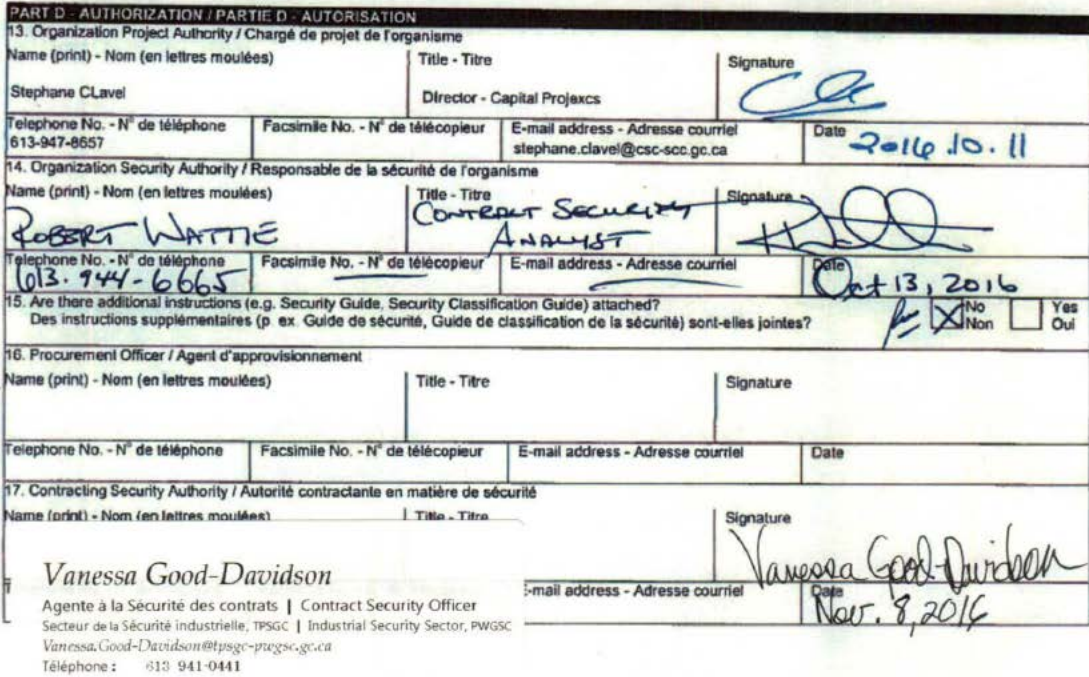 PART D - AUTHORIZATION / PARTIE D - AUTORISATION
13. Organization Project Authority / Chargé de projet de l'organisme
Name (print) - Nom (en lettres moulées) Title - Titre Signature
Stephane CLavel Director - Capital Projexcs
Telephone No. - N° de téléphone Facsimile No. - N° de télécopieur E-mail address - Adresse courriel Date
613-947-8657 stephane.clavel@csc-scc.gc.ca 2016.10.11
14. Organization Security Authority / Responsable de la sécurité de l'organisme
Name (print) - Nom (en lettres moulées) Title - Titre Signature
ROBERT WATTIE CONTRACT SECURITY
ANALYST
Telephone No. - N° de téléphone Facsimile No. - N° de télécopieur E-mail address - Adresse courriel Date
613-944-6665 Oct 13, 2016
15. Are there additional instructions (e.g. Security Guide, Security Classification Guide) attached? No Yes
Des instructions supplémentaires (p. ex. Guide de sécurité, Guide de classification de la sécurité) sont-elles jointes? Non Oui
16. Procurement Officer / Agent d'approvisionnement
Name (print) - Nom (en lettres moulées) Title - Titre Signature
Telephone No. - N° de téléphone Facsimile No. - N° de télécopieur E-mail address - Adresse courriel Date
17. Contracting Security Authority / Autorité contractante en matière de sécurité
Name (print) - Nom (en lettres moulées) Title - Titre Signature
Vanessa Good-Davidson
Vanessa Good-Davidson
E-mail address - Adresse courriel Date
Agente à la Sécurité des contrats | Contract Security Officer Nov. 8, 2016
Secteur de la Sécurité industrielle, TPSGC | Industrial Security Sector, PWGSC
Vanessa.Good-Davidson@tpsgc-pwgsc.gc.ca
Téléphone : 613 941-0441